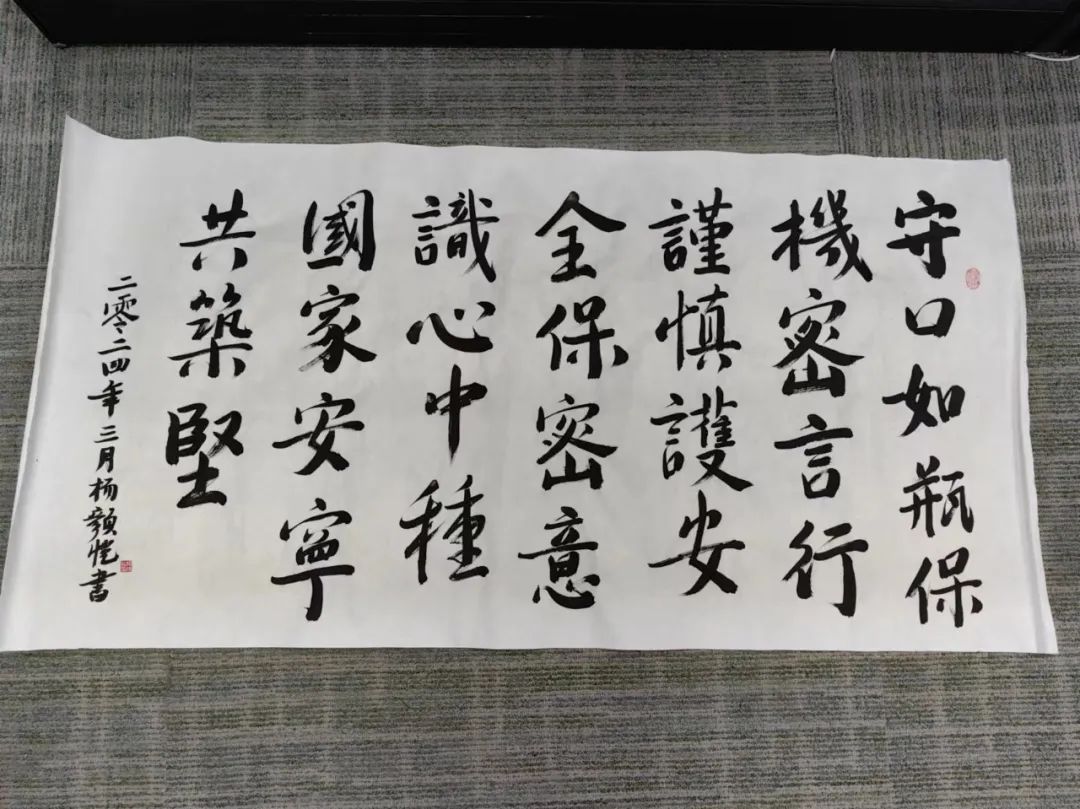 守口如瓶保
機密言行
謹慎護安
全保密意
識心中種
國家安寧
共築堅
二零二四年三月杨顥恺書